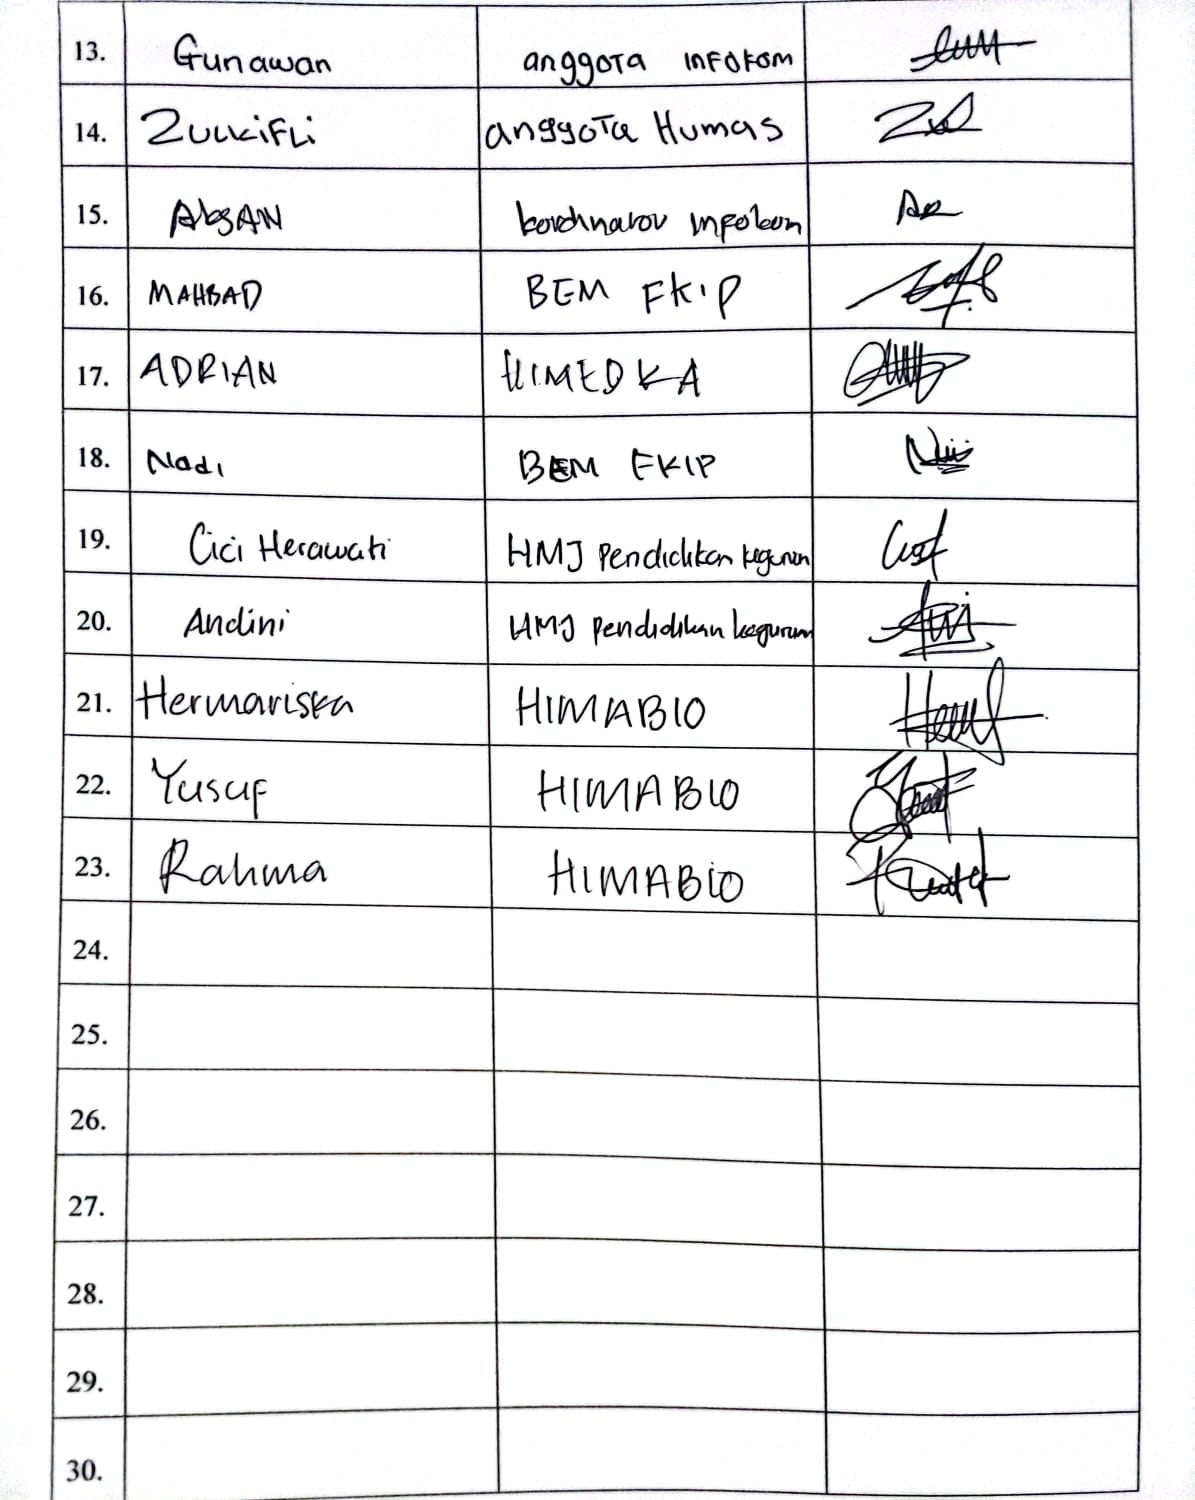 13. Gunawan anggota INFOKOM
14. ZULKIFLi anggota Humas
15. AbsAN kordinator infokom
16. MAHBAD BEM FKIP
17. ADRIAN HIMEDKA
18. Nadi BEM FKIP
19. Cici Herawati HMJ pendidikan keguruan
20. Andini HMJ pendidikan keguruan
21. Hermariska HIMABIO
22. Yusuf HIMABIO
23. Rahma HIMABiO
24.
25.
26.
27.
28.
29.
30.